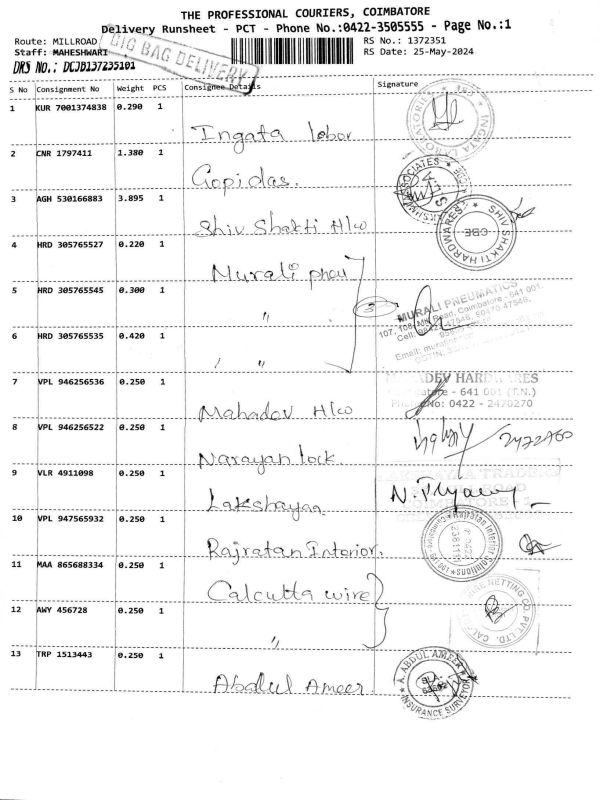 THE PROFESSIONAL COURIERS, COIMBATORE
Delivery Runsheet - PCT - Phone No.:0422-3505555 - Page No.:1
Route: MILLROAD
RS No.: 1372351
Staff: MAHESHWARI
RS Date: 25-May-2024
BIG BAG DELIVERY
DRS NO.: DCJB137235101
S No Consignment No Weight PCS Consignee Details Signature
1 KUR 7001374838 0.290 1
Ingata labor
2 CNR 1797411 1.380 1
Gopidas.
3 AGH 530166883 3.895 1
Shiv Shakti H/w
SHIV SHAKTI HARDWARES CBE
4 HRD 305765527 0.220 1
Murali pneu
5 HRD 305765545 0.300 1
〃
3
MURALI PNEUMATICS
6 HRD 305765535 0.420 1
〃
7 VPL 946256536 0.250 1
Mahadev H/w
HARDWARES
- 641 001 (T.N.)
No: 0422 - 2470270
8 VPL 946256522 0.250 1
Narayan lock
9 VLR 4911098 0.250 1
Lakshayaa
10 VPL 947565932 0.250 1
Rajratan Interior.
Rajratan Interior Solutions
11 MAA 865688334 0.250 1
Calcutta wire
NETTING CO. PVT. LTD.
12 AWY 456728 0.250 1
〃
13 TRP 1513443 0.250 1
Abdul Ameer
A. ABDUL AMEER
INSURANCE SURVEYOR